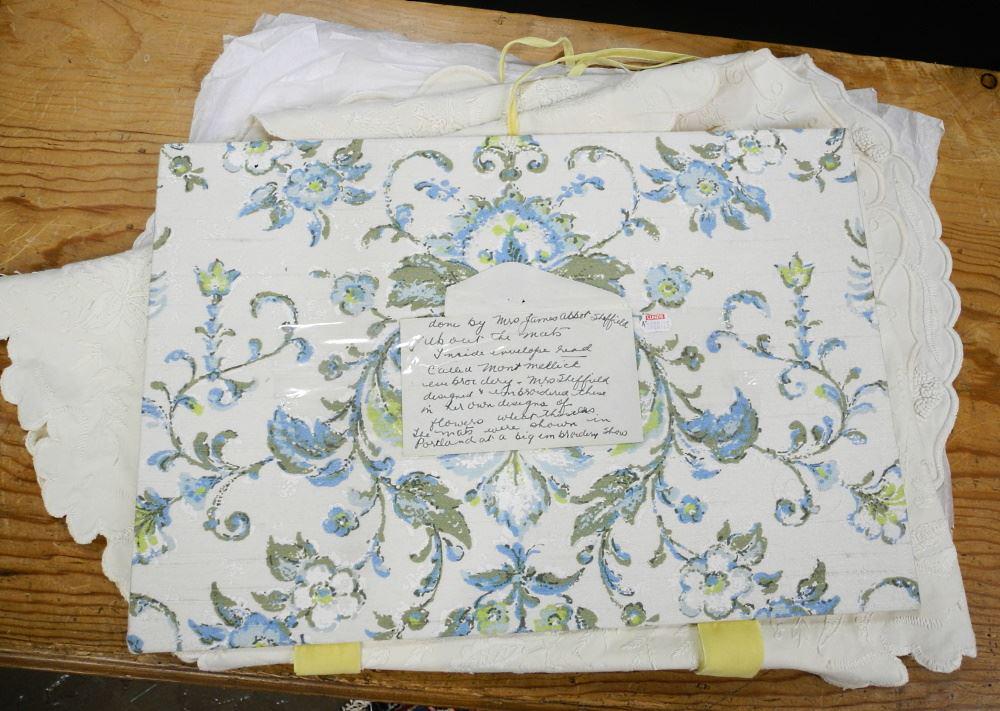 done by Mrs James Abbot Sheffield
about the mats
Inside envelope read
Called Mont mellick
embroidery. Mrs Sheffield
designed & embroidered these
in her own designs of
flowers
The mats were shown in
Portland at a big embroidery Show